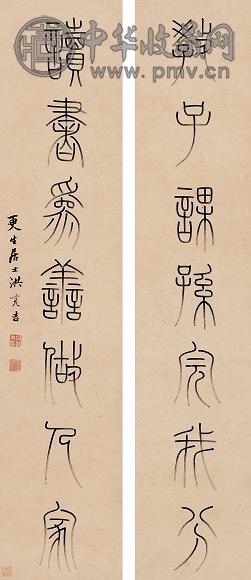 中华收藏网
www.pmv.cn
教子課孫完我分
讀書爲善做人家
更生居士洪亮吉